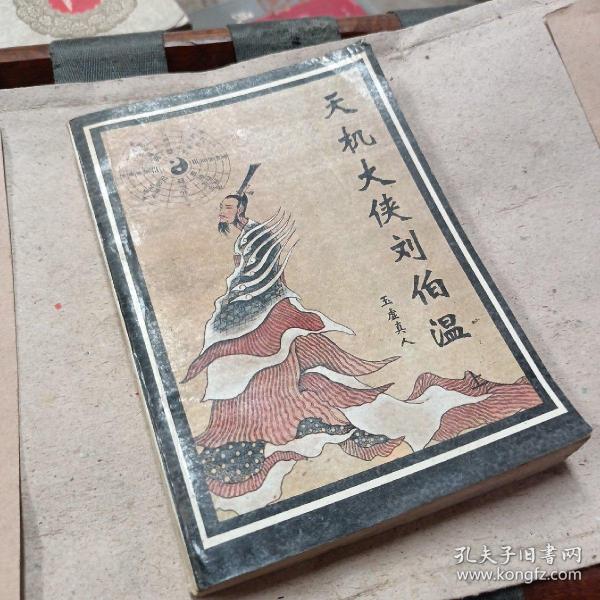 天机大侠刘伯温
玉虚真人
上
孔夫子旧书网
www.kongfz.com